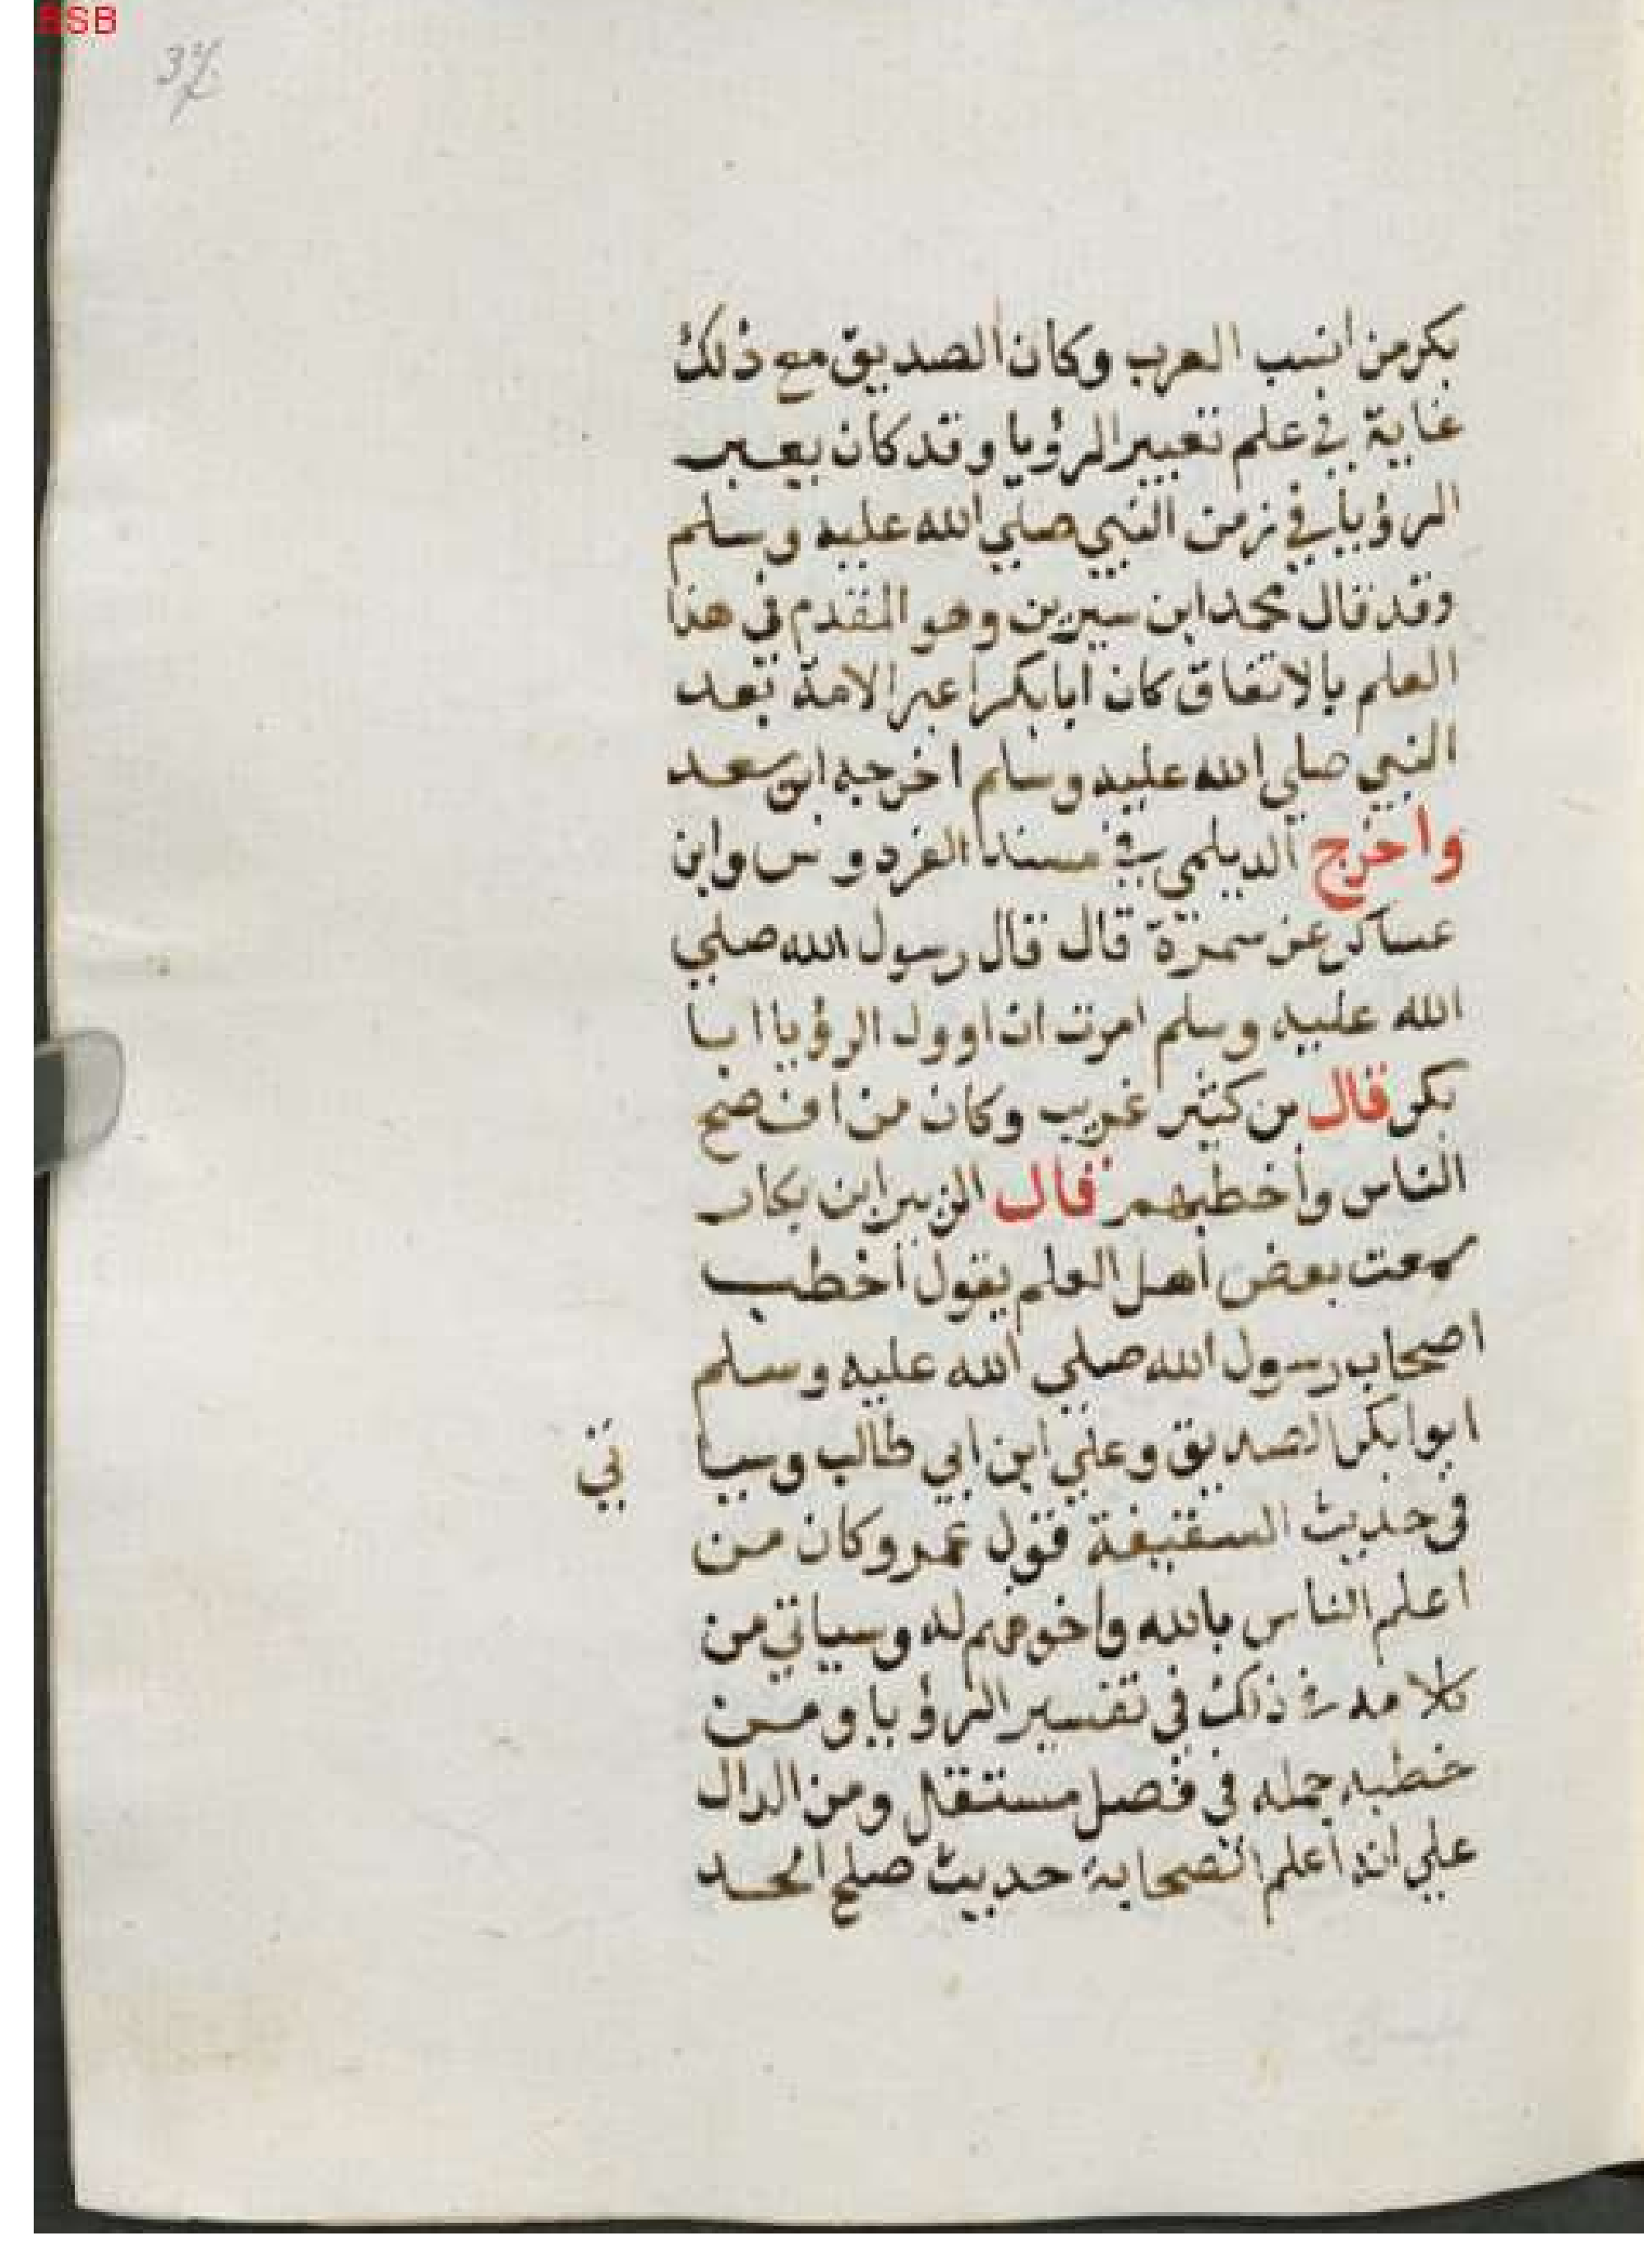 BSB
37
بكر من أنسب العرب وكان الصديق مع ذلك
غاية في علم تعبير الرؤيا وقد كان يعبر
الرؤيا في زمن النبي صلي الله عليه وسلم
وقد قال محمد ابن سيرين وهو المقدم في هذا
العلم بالاتفاق كان أبا بكر اعبر الامة بعد
النبي صلي الله عليه وسلم اخرجه ابن سعد
واخرج الديلمي في مسند الفردوس وابن
عساكر عن سمرة قال قال رسول الله صلي
الله عليه وسلم امرت ان اوول الرؤيا ابا
بكر قال بن كثير غريب وكان من افصح
الناس وأخطبهم قال الزبير ابن بكار
سمعت بعض أهل العلم يقول أخطب
اصحاب رسول الله صلي الله عليه وسلم
ابوا بكر الصديق وعلي ابن ابي طالب وسيا
تي
في حديث السقيفة قول عمر وكان من
اعلم الناس بالله واخوفهم له وسياتي من
كلامه في ذلك في تفسير الرؤيا ومن
خطبه جمله في فصل مستقل ومن الدال
علي انه اعلم الصحابة حديث صلح الحد